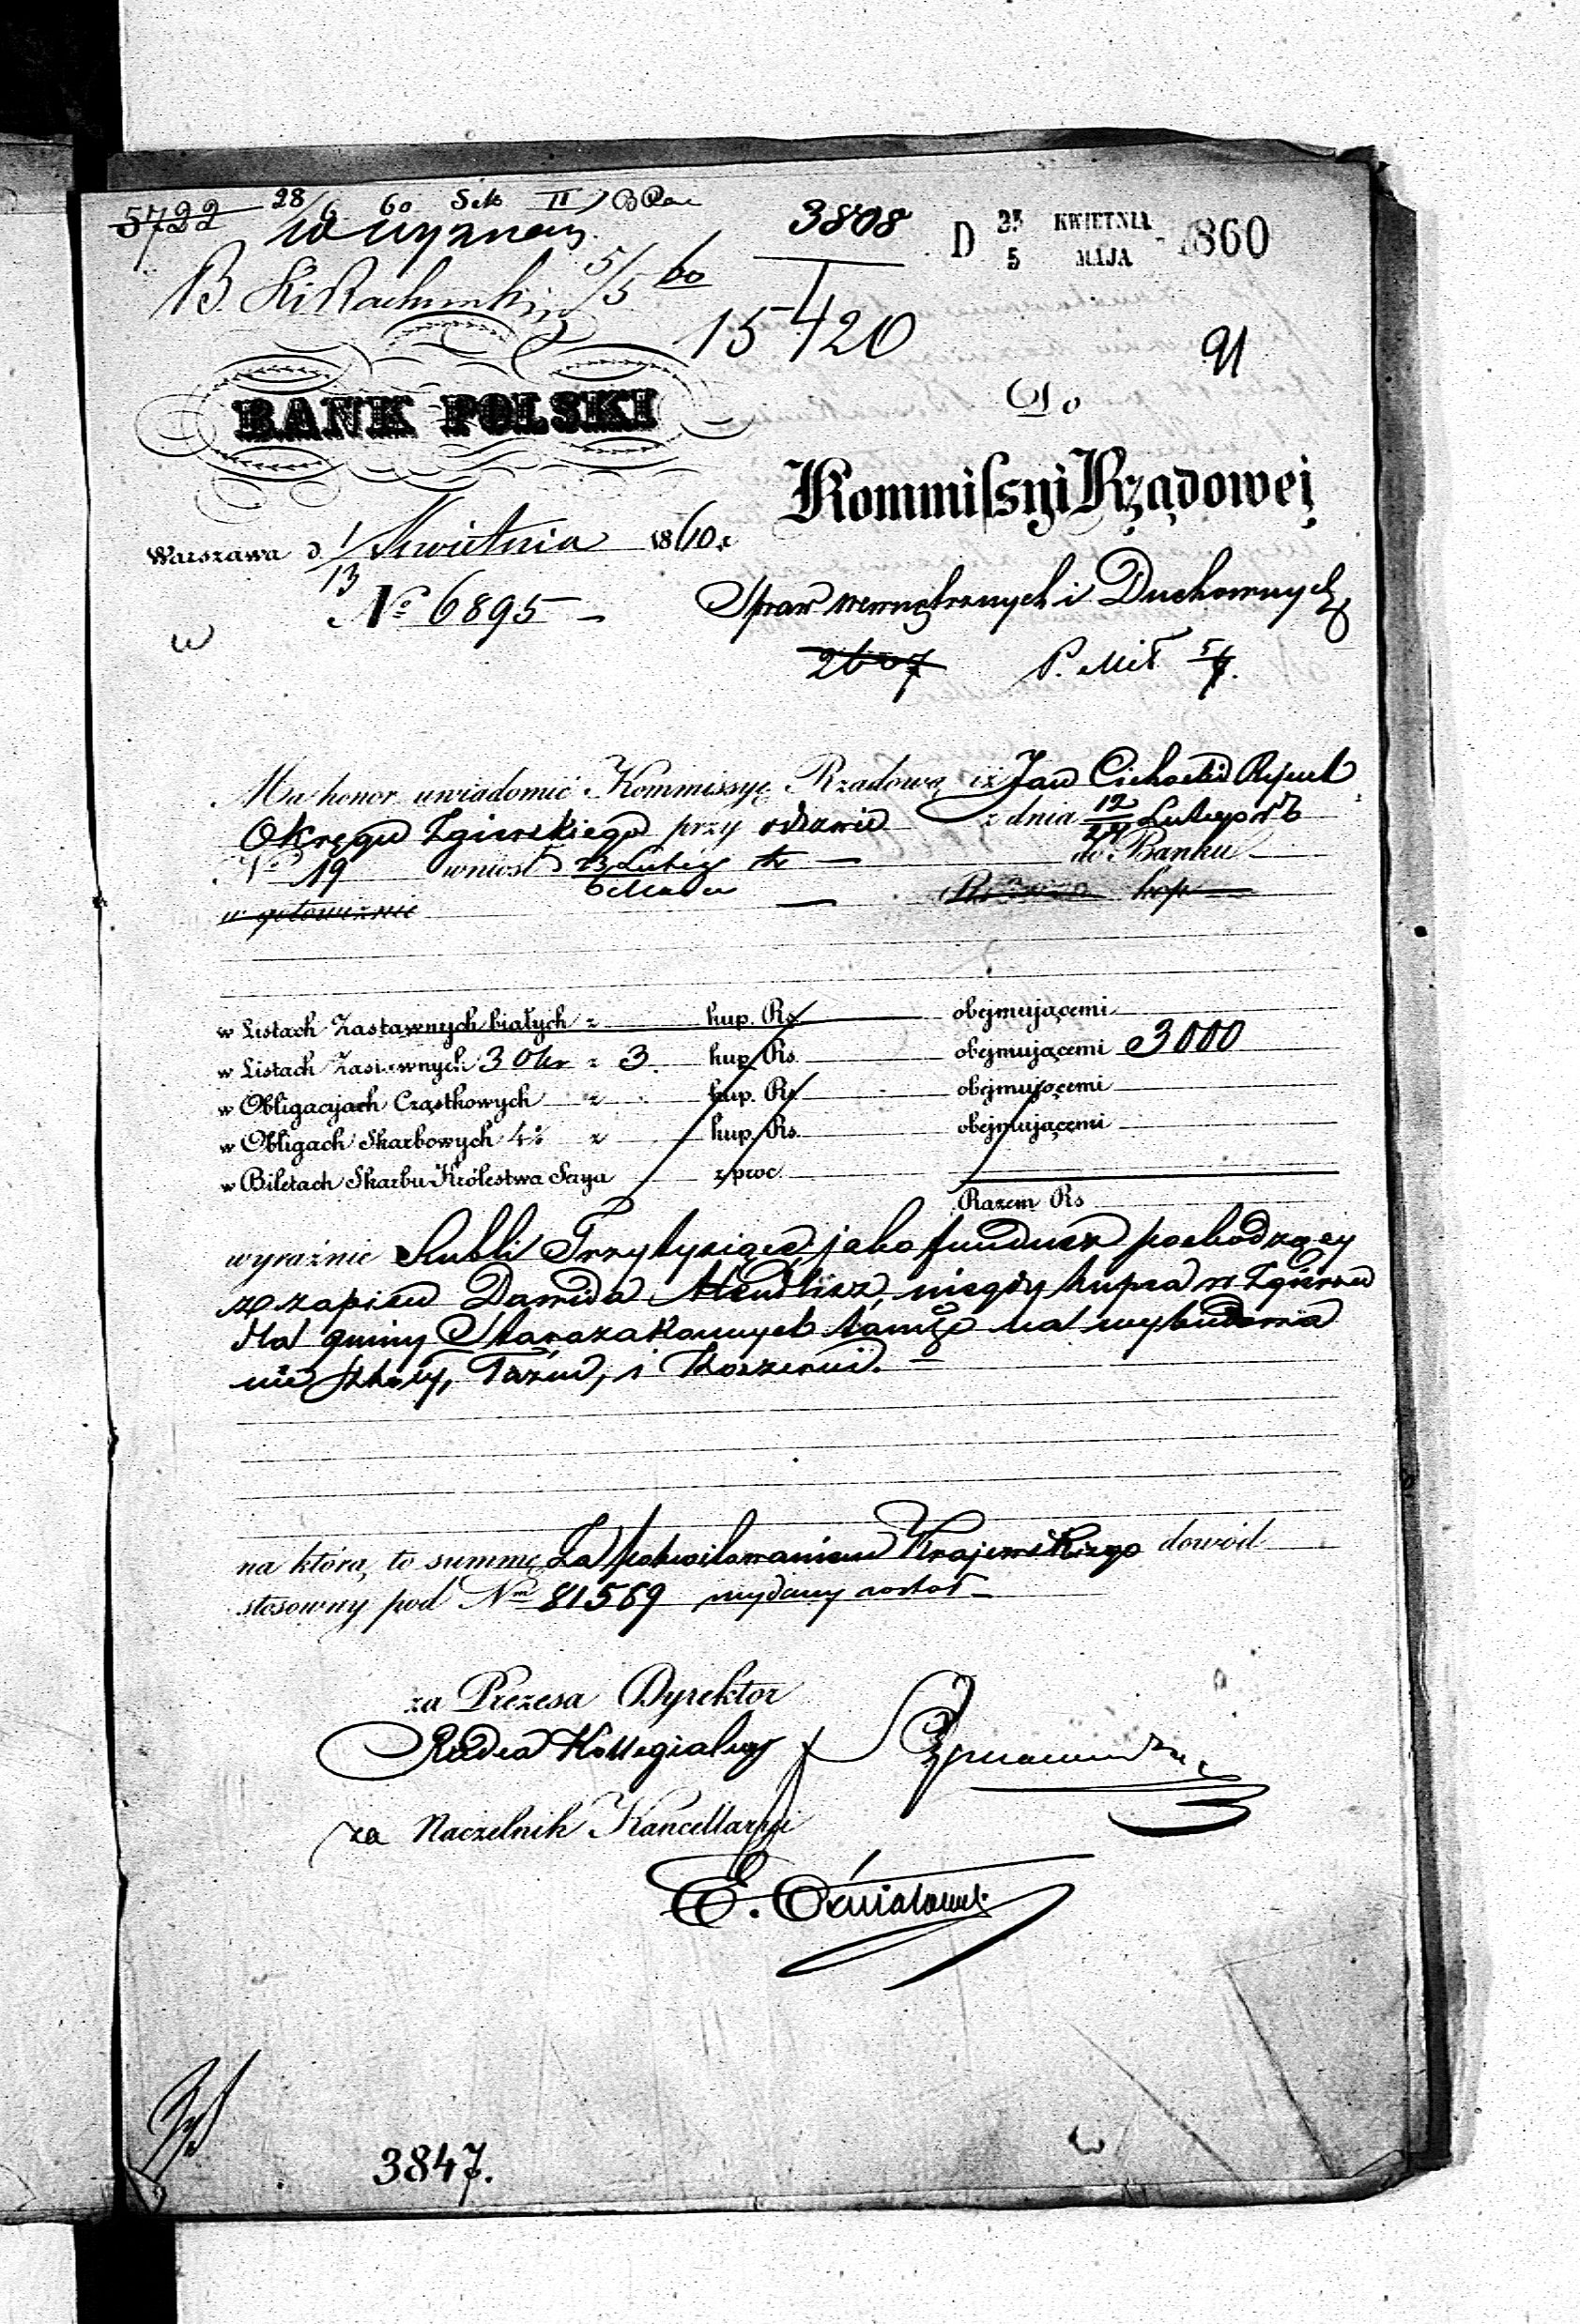 5722 28/6 60 Sek II
3808
D 25/5 KWIETNIA/MAJA 1860
5/5 60
15420
91
BANK POLSKI
Do
Kommissyi Rządowej
Warszawa d. 1/13 Kwietnia 1860 r.
Nº 6895
Spraw wewnętrznych i Duchownych
w
P. Mił
Ma honor uwiadomić Kommissyę Rządową iż Jan Cichocki Rejent
Okręgu Zgierskiego przy odezwie z dnia 12/24 Lutego r b
Nº 19 wniósł 23 Lutego/6 Marca do Banku
w gotowiznie kop
w Listach Zastawnych białych z kup. Rs. obejmującemi
w Listach Zastawnych 3 Okr z 3. kup. Rs. obejmującemi 3000
w Obligacyjach Cząstkowych z kup. Rs. obejmującemi
w Obligach Skarbowych 4% z kup. Rs. obejmującemi
w Biletach Skarbu Królestwa Serya z proc.
Razem Rs
wyraźnie Rubli Trzy tysiące, jako fundusz pochodzący
z zapisu Dawida niegdy kupca w Zgierzu
dla gminy Starozakonnych tamże na wybudowa
nie szkoły, Łaźni, i Koszerni.
na którą to summę Za pokwitowaniem Krajewskiego dowód
stosowny pod Nm 81569 wydany został
za Prezesa Dyrektor
Radca Kollegialny
za Naczelnik Kancellaryi
E.
3847.